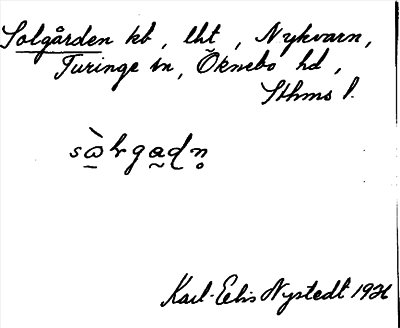 Solgården kb, lht, Nykvarn,
Turinge sn, Öknebo hd,
Sthms l.
Karl-Eric Nystedt 1926